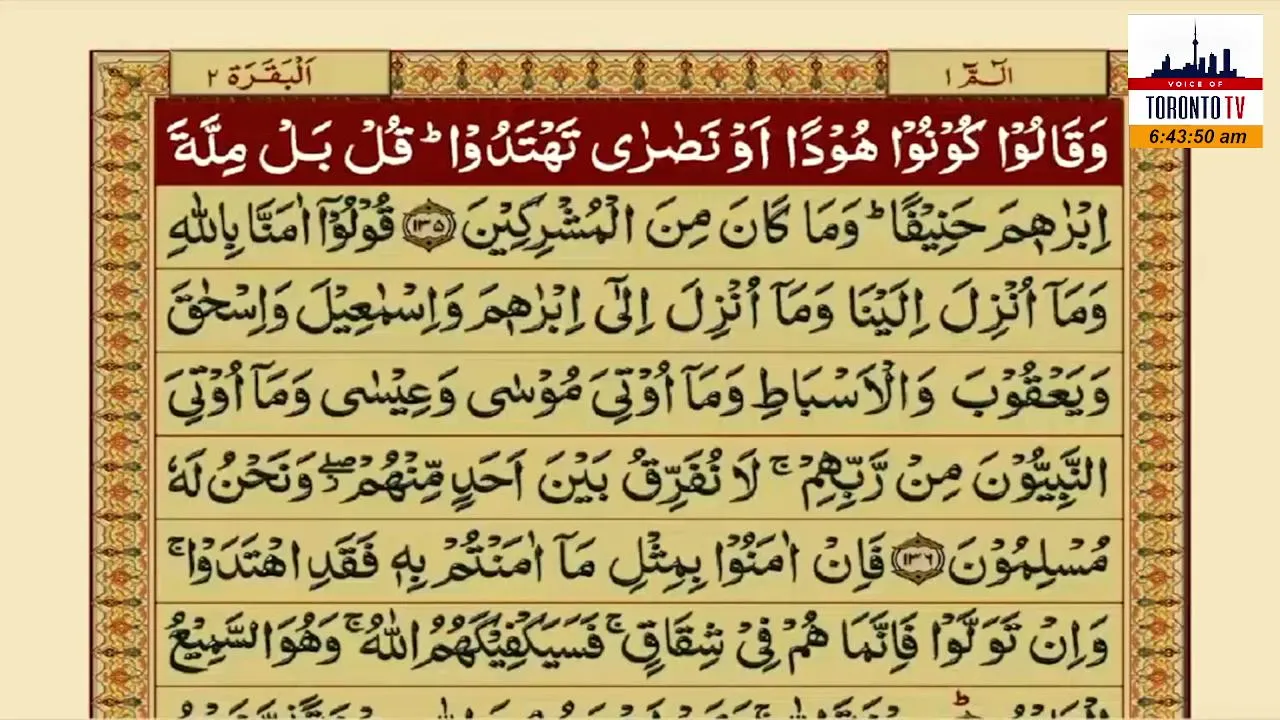 الٓمّٓ ١
اَلْبَقَرَة ٢
VOICE OF
TORONTO TV
6:43:50 am
وَقَالُوْا كُوْنُوْا هُوْدًا اَوْ نَصٰرٰى تَهْتَدُوْا ؕ قُلْ بَلْ مِلَّةَ
اِبْرٰهٖمَ حَنِيْفًا ؕ وَمَا كَانَ مِنَ الْمُشْرِكِيْنَ ۝١٣٥ قُوْلُوْۤا اٰمَنَّا بِاللّٰهِ
وَمَاۤ اُنْزِلَ اِلَيْنَا وَمَاۤ اُنْزِلَ اِلٰٓى اِبْرٰهٖمَ وَاِسْمٰعِيْلَ وَاِسْحٰقَ
وَيَعْقُوْبَ وَالْاَسْبَاطِ وَمَاۤ اُوْتِيَ مُوْسٰى وَعِيْسٰى وَمَاۤ اُوْتِيَ
النَّبِيُّوْنَ مِنْ رَّبِّهِمْ ۚ لَا نُفَرِّقُ بَيْنَ اَحَدٍ مِّنْهُمْ ۖ وَنَحْنُ لَهٗ
مُسْلِمُوْنَ ۝١٣٦ فَاِنْ اٰمَنُوْا بِمِثْلِ مَاۤ اٰمَنْتُمْ بِهٖ فَقَدِ اهْتَدَوْا ۚ
وَاِنْ تَوَلَّوْا فَاِنَّمَا هُمْ فِيْ شِقَاقٍ ۚ فَسَيَكْفِيْكَهُمُ اللّٰهُ ۚ وَهُوَ السَّمِيْعُ